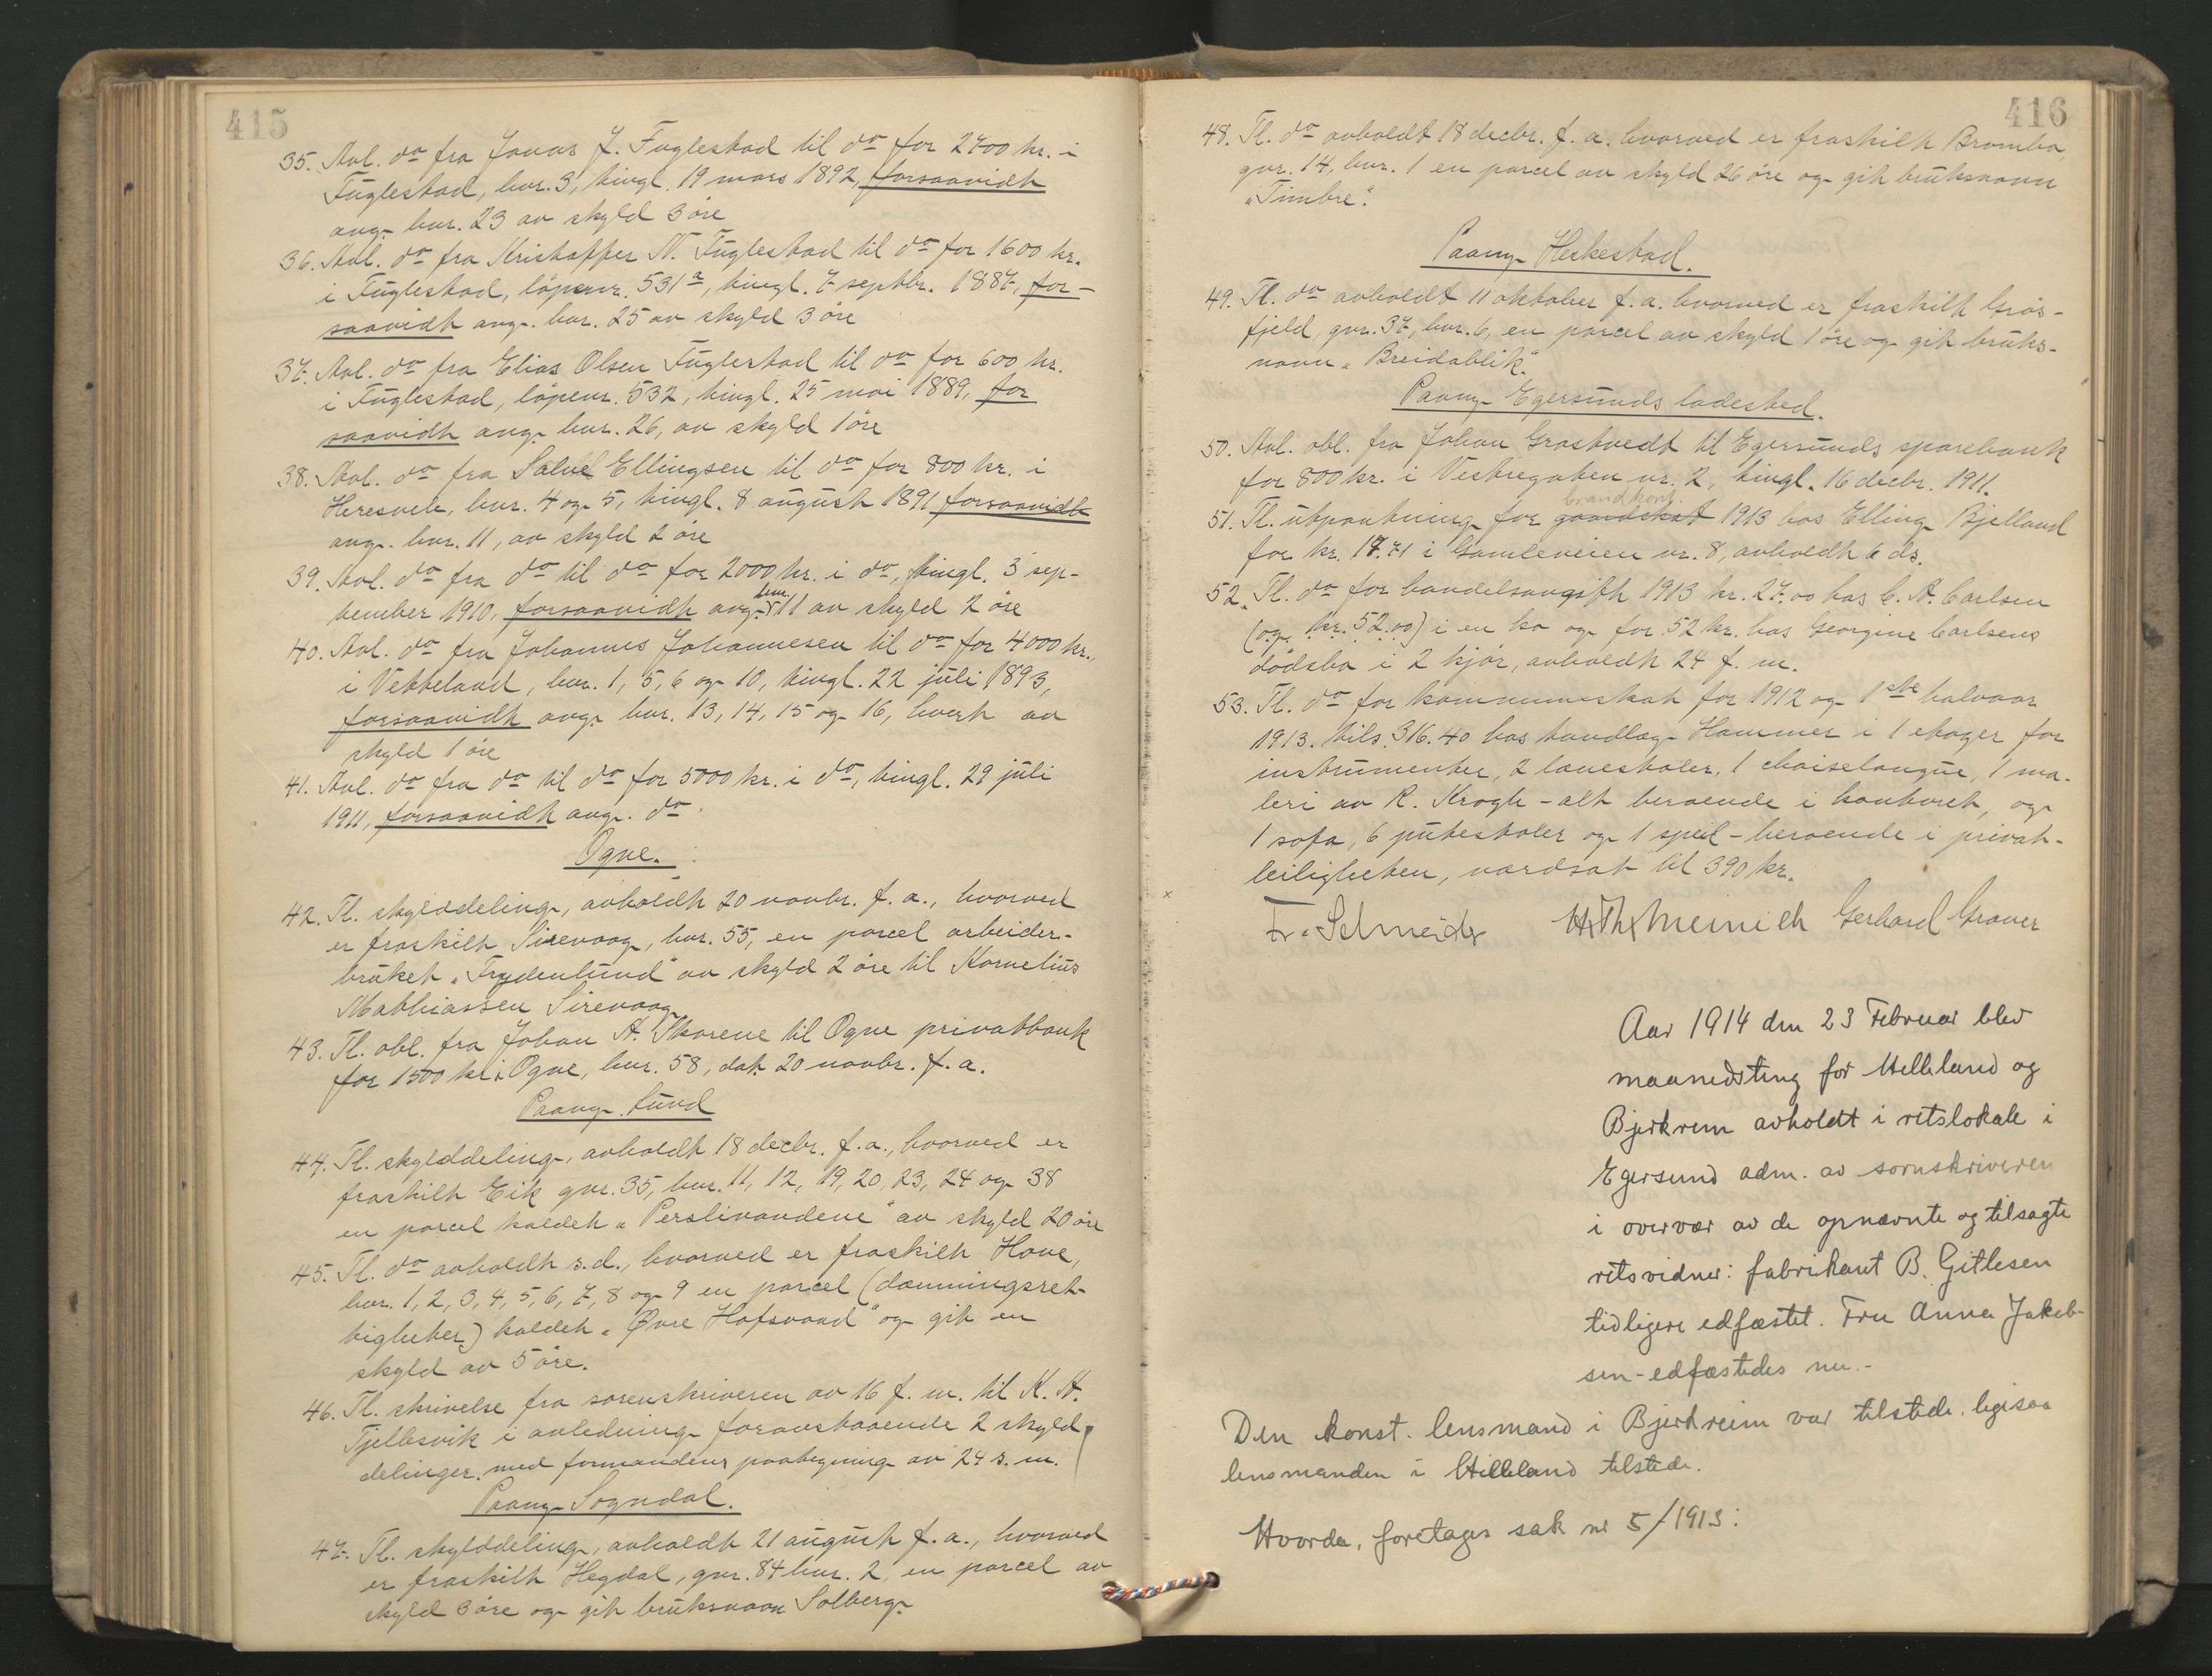 415
35. Avl. do fra Jonas J. Fuglestad til do for 2400 kr. i
Fuglestad, bnr. 3, tingl. 19 mars 1892, forsaavidt
ang. bnr. 23 av skyld 3 øre
36. Avl. do fra Kristoffer N. Fuglestad til do for 1600 kr.
i Fuglestad, løpenr. 531a, tingl. 7 septbr. 1887, for-
saavidt ang. bnr. 25 av skyld 3 øre
37. Avl. do fra Elias Olsen Fuglestad til do for 600 kr.
i Fuglestad, løpenr. 532, tingl. 25 mai 1889, for
saavidt ang. bnr. 26, av skyld 1 øre
38. Avl. do fra Salve Ellingsen til do for 800 kr. i
Heresvele, bnr. 4 og 5, tingl. 8 august 1891 forsaavidt
ang. bnr. 11, av skyld 2 øre
39. Avl. do fra do til do for 2000 kr. i do, tingl. 3 sep-
tember 1910, forsaavidt ang. bnr. 11 av skyld 2 øre
40. Avl. do fra Johannes Johannesen til do for 4000 kr.,
i Vetteland, bnr. 1, 5, 6 og 10, tingl. 22 juli 1893,
forsaavidt ang. bnr. 13, 14, 15 og 16, hvert av
skyld 1 øre
41. Avl. do fra do til do for 5000 kr. i do, tingl. 29 juli
1911, forsaavidt ang. do
Ogne.
42. Tl. skylddeling, avholdt 20 novbr. f. a., hvorved
er fraskilt Sirevaag, bnr. 55, en parcel arbeider-
bruket "Frydenlund" av skyld 2 øre til Kornelius
Mathiassen Sirevaag
43. Tl. obl. fra Johan A. Skarene til Ogne privatbank
for 1500 kr. i Ogne, bnr. 58, dat. 20 novbr. f. a.
Paang. Lund
44. Tl. skylddeling, avholdt 18 decbr. f. a., hvorved er
fraskilt Eik gnr. 35, bnr. 11, 12, 19, 20, 23, 24 og 38
en parcel kaldet "Perslivandene" av skyld 20 øre
45. Tl. do avholdt s.d., hvorved er fraskilt Hove,
bnr. 1, 2, 3, 4, 5, 6, 7, 8 og 9 en parcel (damningsret-
tigheter) kaldet "Øvre Hofsvand" og gik en
skyld av 5 øre.
46. Tl. skrivelse fra sorenskriveren av 16 f. m. til K. A.
Tjellesvik i anledning foranstaaende 2 skyld-
delinger med formandens paategning av 24 s. m.
Paang. Sogndal.
47. Tl. skylddeling, avholdt 21 august f. a., hvorved
er fraskilt Hegdal, gnr. 84 bnr. 2, en parcel av
skyld 3 øre og gik bruksnavn Solberg.
416
48. Tl. do avholdt 18 decbr. f. a. hvorved er fraskilt Bramba,
gnr. 14, bnr. 1 en parcel av skyld 26 øre og gik bruksnavn
"Timbre".
Paang. Heskestad.
49. Tl. do avholdt 11 oktober f. a. hvorved er fraskilt Graa-
fjeld, gnr. 37, bnr. 6, en parcel av skyld 1 øre og gik bruks-
navn "Breidablik".
Paang. Egersunds ladested.
50. Avl. obl. fra Johan Grastvedt til Egersunds sparebank
for 800 kr. i Vestregaten nr. 2, tingl. 16 decbr. 1911.
brandkont.
51. Tl. utpantning for gaardskat 1913 hos Elling Bjelland
for kr. 17.71 i Gamleveien nr. 8, avholdt 6 ds.
52. Tl. do for handelsavgift 1913 kr. 27.00 hos C. A. Carlsen
(og kr. 52.00) i en ko og for 52 kr. hos Georgine Carlsens
dødsbo i 2 kjør, avholdt 24 f. m.
53. Tl. do for kommuneskat for 1912 og 1ste halvaar
1913. tils. 316.40 hos tandlæge Hammer i 1 etager for
instrumenter, 2 lænestoler, 1 chaiselongue, 1 ma-
leri av R. Krogh - alt beroende i kontoret, og
1 sofa, 6 putestoler og 1 speil - beroende i privat-
leiligheten, værdsat til 390 kr.
Fr. Schneider Gerhard Graver
Aar 1914 den 23 Februar blev
maanedsting for Helleland og
Bjerkrem avholdt i retslokale i
Egersund adm. av sornskriveren
i overvær av de opnævnte og tilsagte
retsvidner: fabrikant B. Gitlesen
tidligere edfæstet. Fru Anna Jakob-
sen - edfæstedes nu. -
Den konst. lensmand i Bjerkreim var tilstede, ligesaa
lensmanden i Helleland tilstede.
Hvorda, foretages sak nr 5/1913: